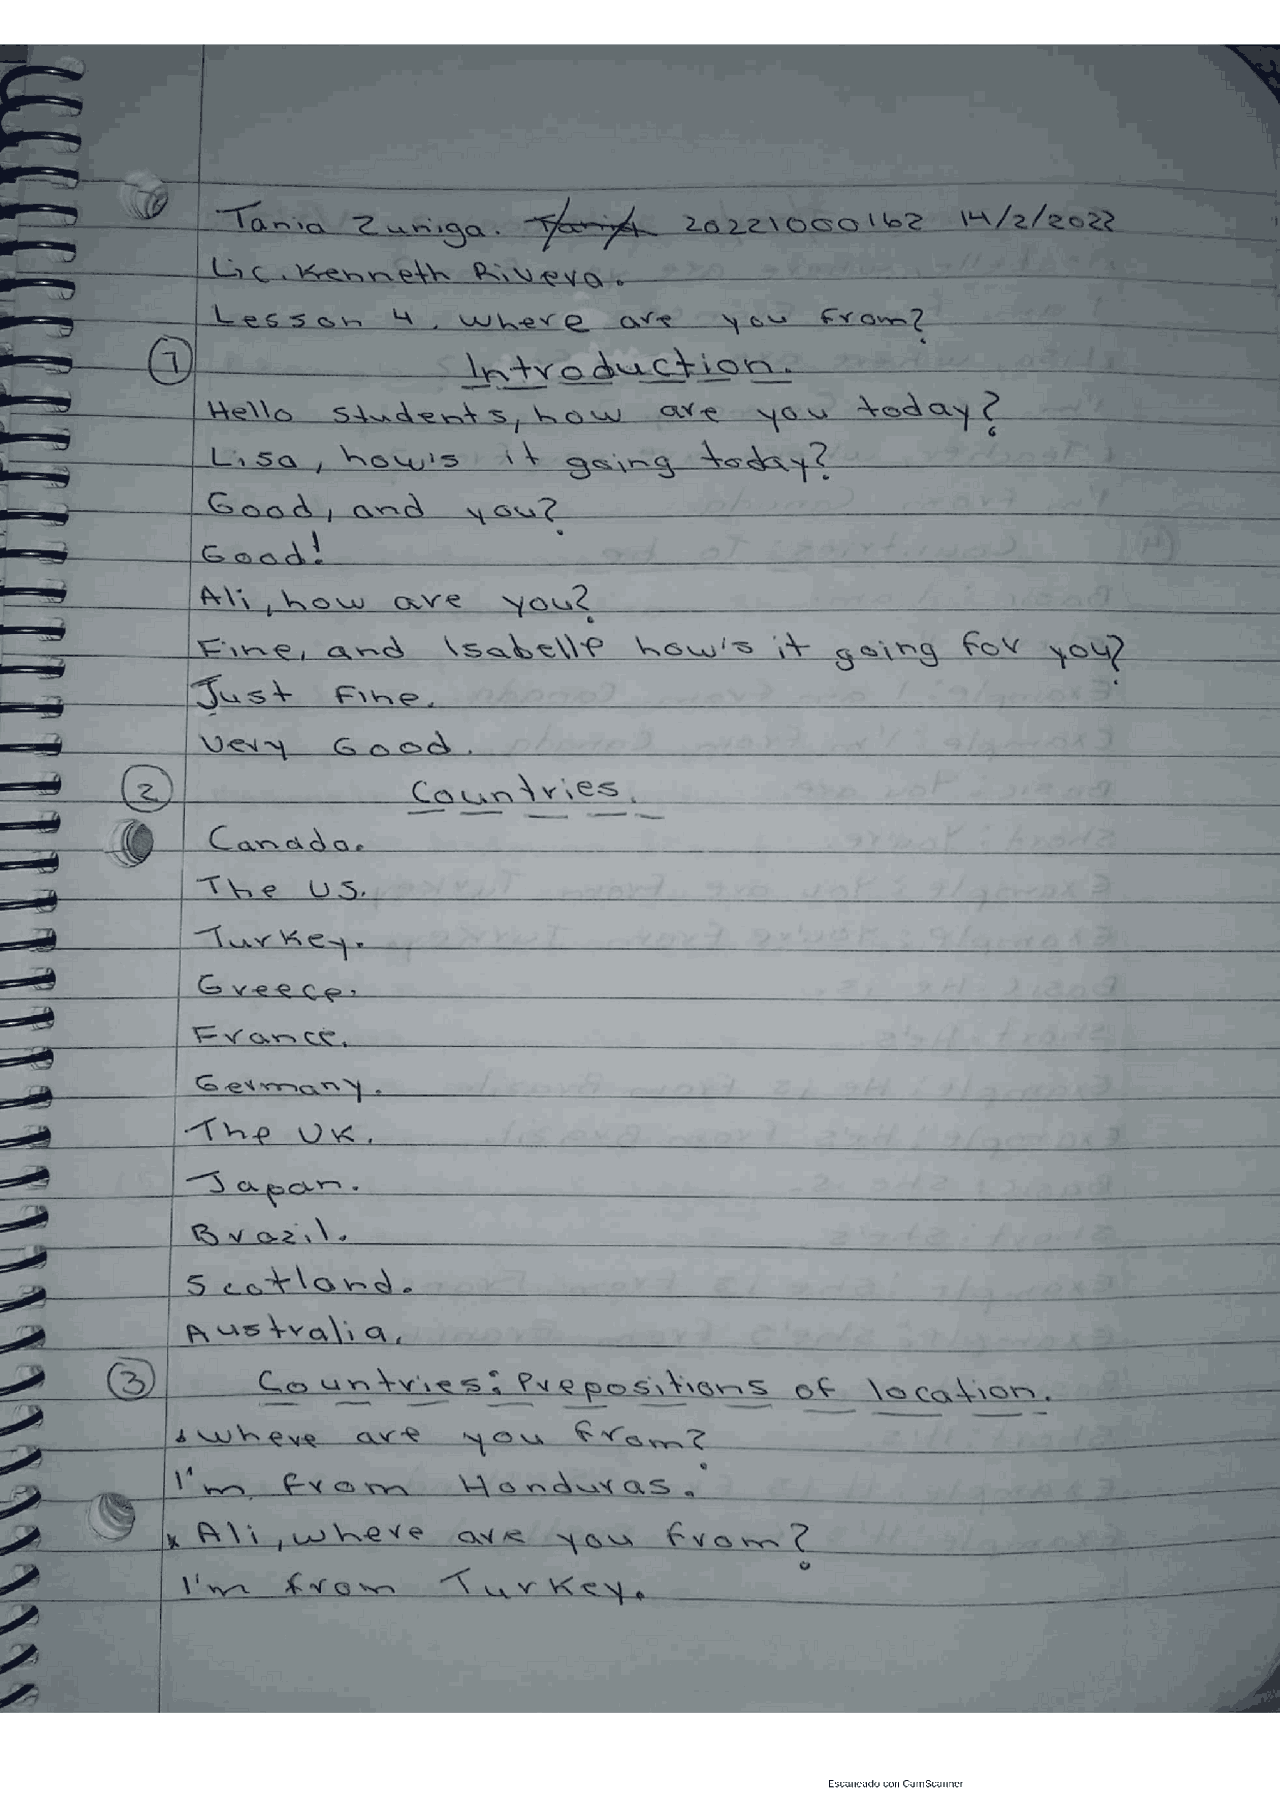 Tania Zuniga. 20221000162 14/2/2022
Lic. Kenneth Rivera.
Lesson 4. where are you from?
1 Introduction.
Hello students, how are you today?
Lisa, how's it going today?
Good, and you?
Good!
Ali, how are you?
Fine, and Isabelle how's it going for you?
Just fine.
Very Good.
2 Countries.
Canada.
The US.
Turkey.
Greece.
France.
Germany.
The UK.
Japan.
Brazil.
Scotland.
Australia.
3 Countries: Prepositions of location.
where are you from?
I'm from Honduras.
x Ali, where are you from?
I'm from Turkey.
Escaneado con CamScanner